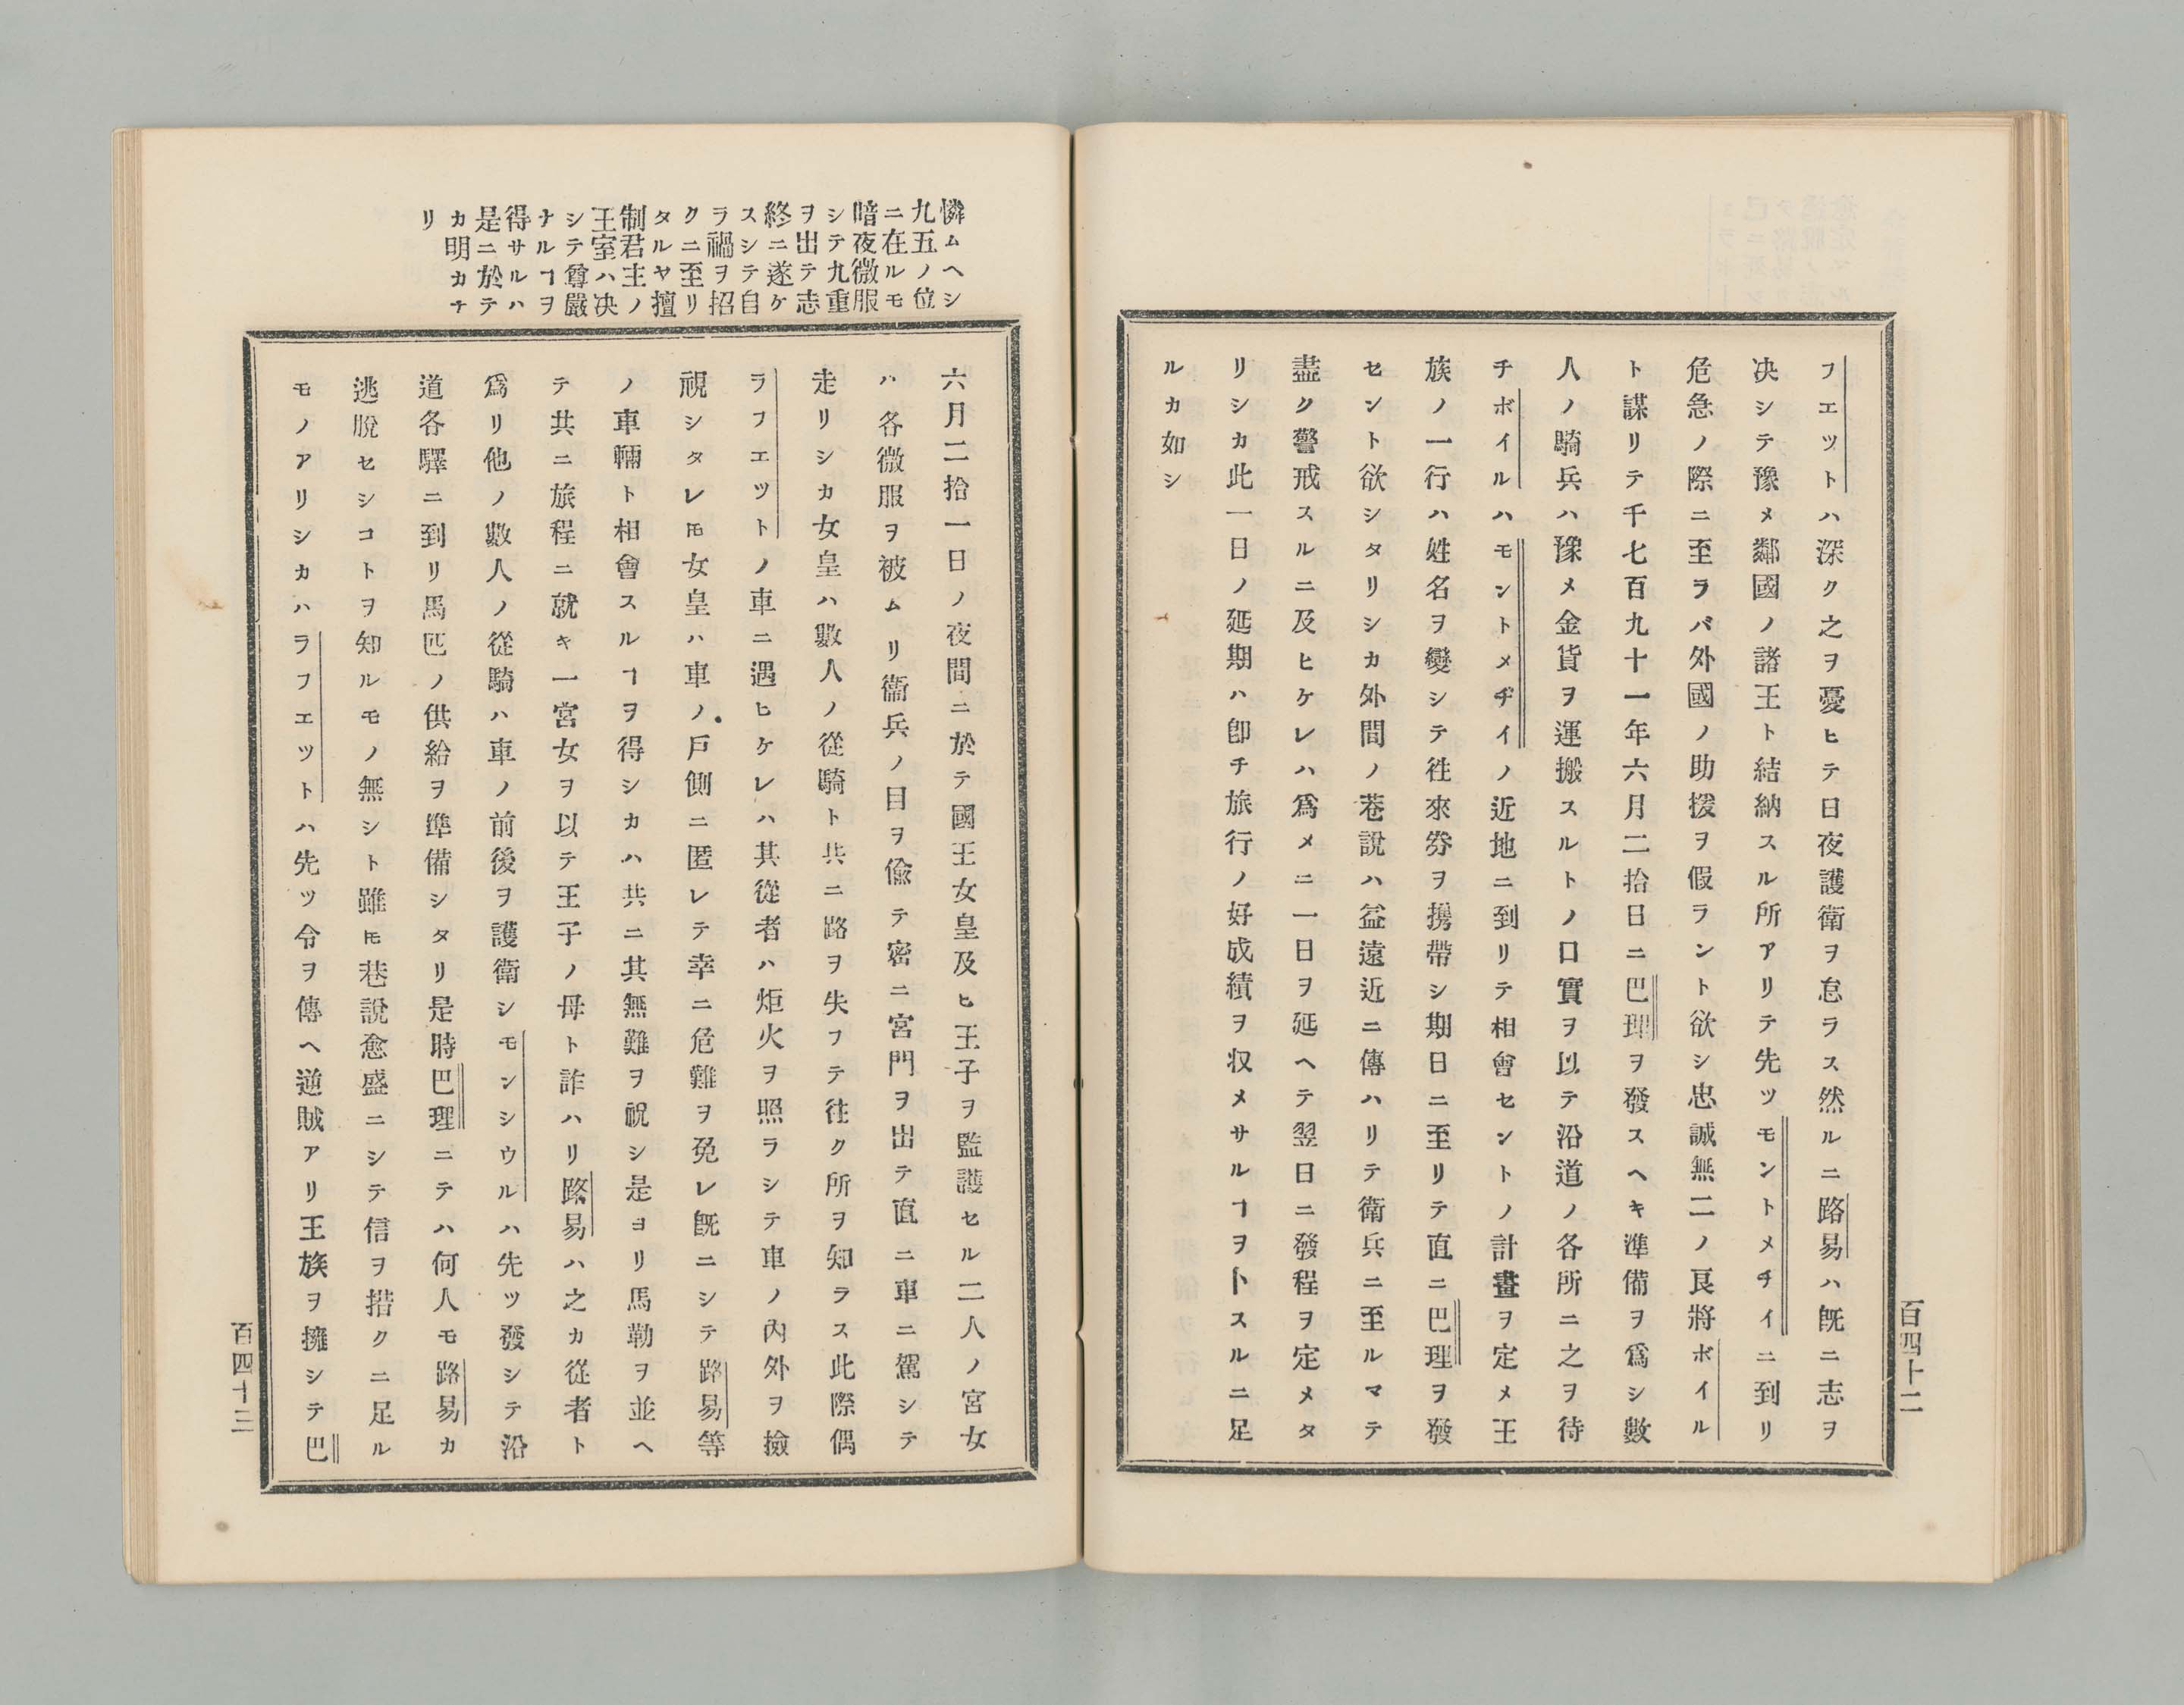 フエツトハ深ク之ヲ憂ヒテ日夜護衛ヲ怠ラス然ルニ路易ハ既ニ志ヲ
決シテ豫メ鄰國ノ諸王ト結納スル所アリテ先ツモントメチイニ到リ
危急ノ際ニ至ラバ外國ノ助援ヲ假ラント欲シ忠誠無二ノ良將ボイル
ト謀リテ千七百九十一年六月二拾日ニ巴理ヲ發スヘキ準備ヲ爲シ數
人ノ騎兵ハ豫メ金貨ヲ運搬スルトノ口實ヲ以テ沿道ノ各所ニ之ヲ待
チボイルハモントメヂイノ近地ニ到リテ相會セントノ計畫ヲ定メ王
族ノ一行ハ姓名ヲ變シテ徃來劵ヲ携帶シ期日ニ至リテ直ニ巴理ヲ發
セント欲シタリシカ外間ノ巷說ハ益遠近ニ傳ハリテ衛兵ニ至ルマテ
盡ク警戒スルニ及ヒケレハ爲メニ一日ヲ延ヘテ翌日ニ發程ヲ定メタ
リシカ此一日ノ延期ハ卽チ旅行ノ好成績ヲ収メサルヿヲ卜スルニ足
ルカ如シ
百四十二
憐ムヘシ
九五ノ位
ニ在ルモ
暗夜微服
シテ九重
ヲ出テ志
終ニ遂ケ
スシテ自
ラ禍ヲ招
クニ至リ
タルヤ擅
制君主ノ
王室ハ决
シテ尊嚴
ナルヿヲ
得サルハ
是ニ於テ
カ明カナ
リ
六月二拾一日ノ夜間ニ於テ國王女皇及ヒ王子ヲ監護セル二人ノ宮女
ハ各微服ヲ被ムリ衞兵ノ目ヲ偸テ密ニ宮門ヲ出テ直ニ車ニ駕シテ
走リシカ女皇ハ數人ノ從騎ト共ニ路ヲ失フテ往ク所ヲ知ラス此際偶
ラフエツトノ車ニ遇ヒケレハ其從者ハ炬火ヲ照ラシテ車ノ內外ヲ撿
視シタレ𪜈女皇ハ車ノ戶側ニ匿レテ幸ニ危難ヲ免レ旣ニシテ路易等
ノ車輛ト相會スルヿヲ得シカハ共ニ其無難ヲ祝シ是ヨリ馬勒ヲ並ヘ
テ共ニ旅程ニ就キ一宮女ヲ以テ王子ノ母ト詐ハリ路易ハ之カ從者ト
爲リ他ノ數人ノ從騎ハ車ノ前後ヲ護衛シモンシウルハ先ツ發シテ沿
道各驛ニ到リ馬匹ノ供給ヲ準備シタリ是時巴理ニテハ何人モ路易カ
逃脫セシコトヲ知ルモノ無シト雖𪜈巷說愈盛ニシテ信ヲ措クニ足ル
モノアリシカハラフエツトハ先ツ令ヲ傳ヘ逆賊アリ王族ヲ擁シテ巴
百四十三